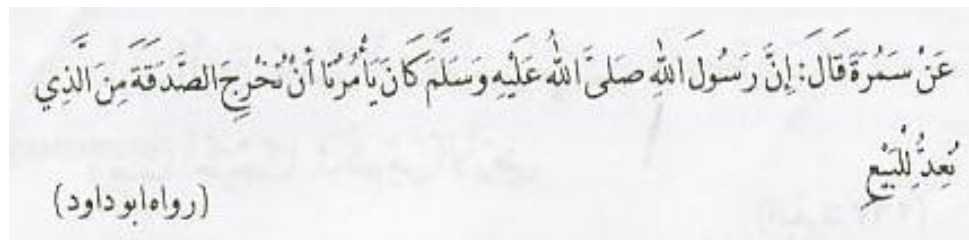 عَنْ سَمُرَةَ قَالَ: إِنَّ رَسُولَ اللهِ صَلَىَّ اللهُ عَلَيْهِ وَسَلَّمَ كَانَ يَأْمُرُنَا أَنْ نُخْرِجَ الصَّدَقَةَ مِنَ الَّذِي
نُعِدُّ لِلْبَيْعِ
(رواه ابو داود)